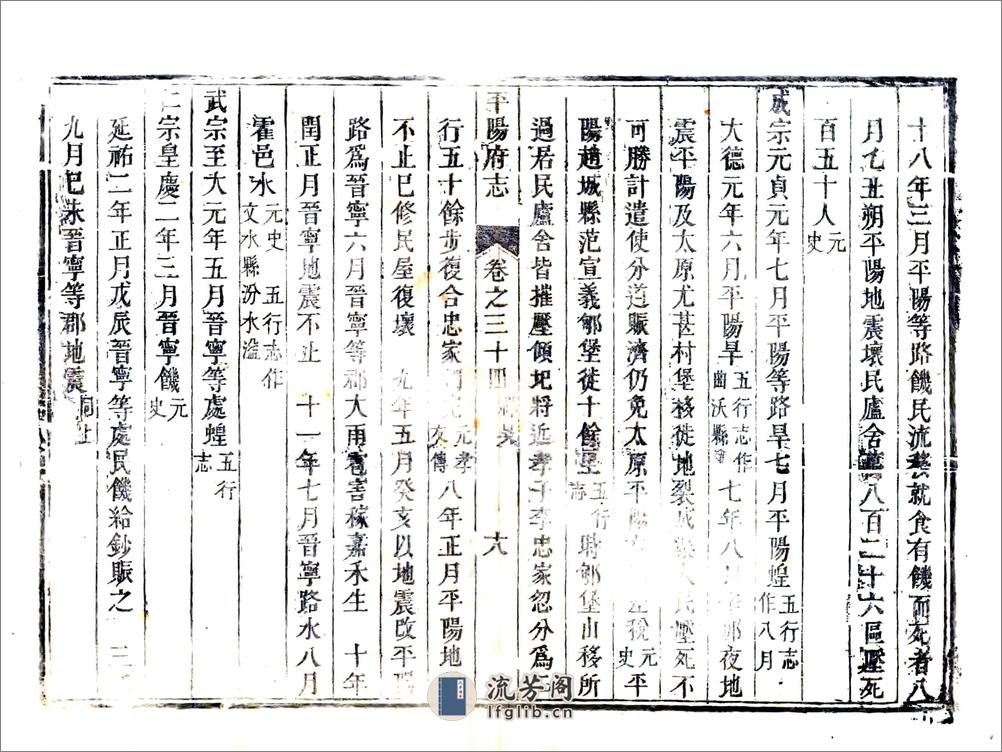 十八年三月平陽等路饑民流移就食有饑而死者八
月乙丑朔平陽地震壞民廬舍萬八百二十六區壓死
百五十人元史
成宗元貞元年七月平陽等路旱七月平陽蝗五行志作八月
大德元年六月平陽旱五行志作曲沃縣 七年八月 卯夜地
震平陽及太原尤甚村堡移徙地裂成渠人民壓死不
可勝計遣使分道賑濟仍免太原平陽 差稅元史 平
陽趙城縣范宣義郇堡徙十餘里五行志 時郇堡山移所
過居民廬舍皆摧壓傾圯將近孝子李忠家忽分為
平陽府志
卷之三十四 祥異
十八
行五十餘步復合忠家 元孝友傳 八年正月平陽地
不止巳修民屋復壞 九年五月癸亥以地震改平陽
路爲晉寧六月晉寧等郡大雨雹害稼嘉禾生 十年
閏正月晉寧地震不止 十一年七月晉寧路水八月
霍邑水元史 五行志作文水縣汾水溢
武宗至大元年五月晉寧等處蝗五行志
仁宗皇慶二年三月晉寧饑元史
延祐二年正月戊辰晉寧等處民饑給鈔賑之 三
九月巳未晉寧等郡地震同上
流芳阁
lfglib.cn